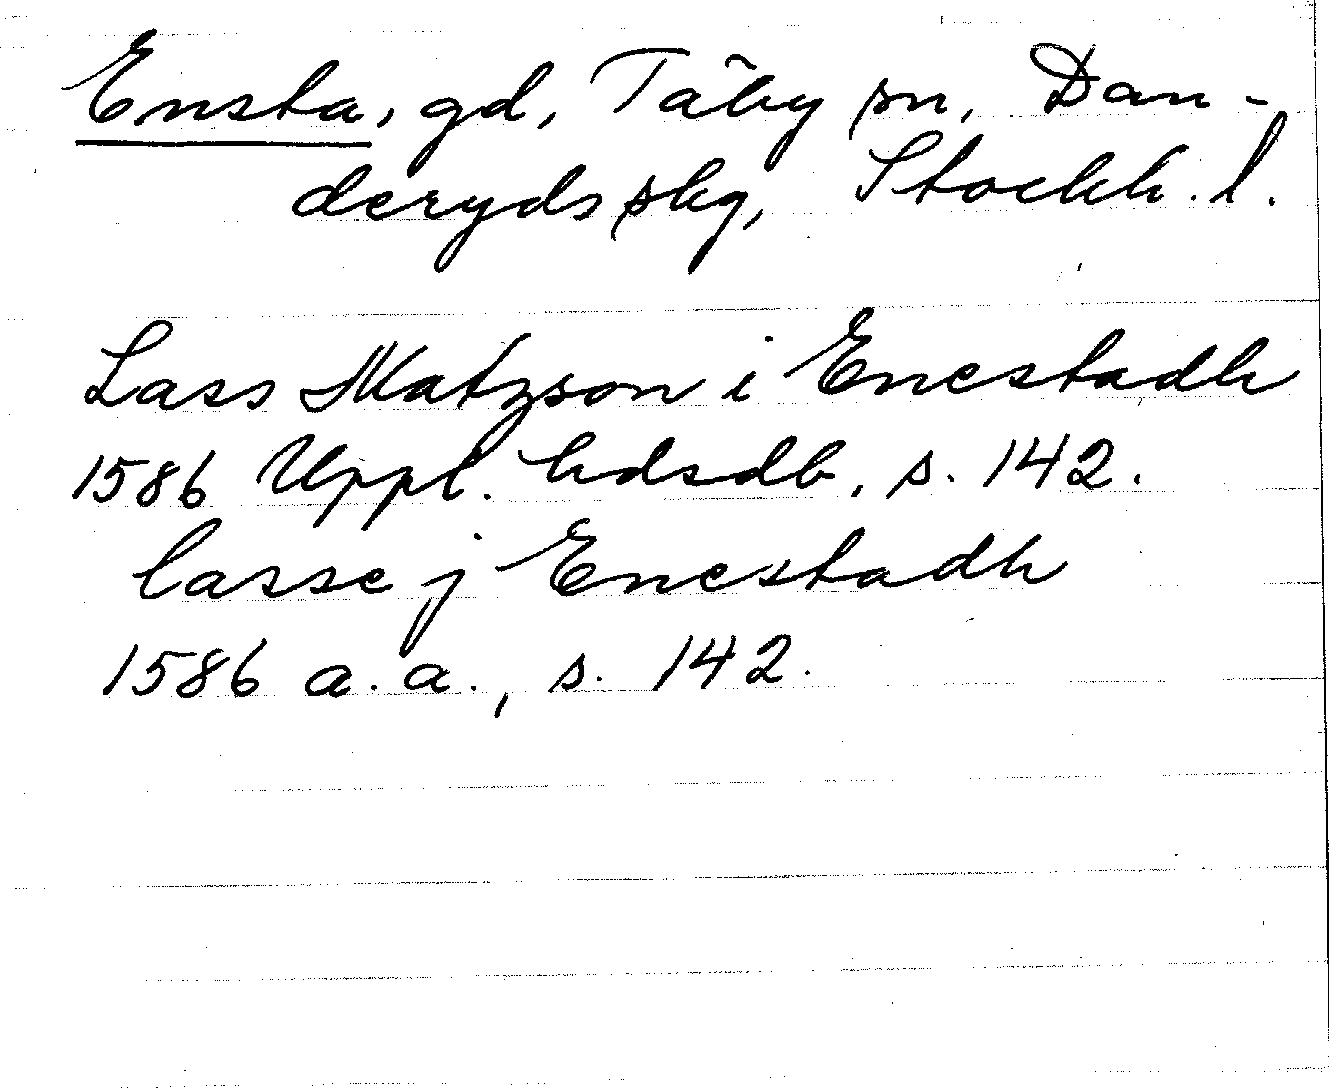 Ensta, gd, Täby sn, Dan-
deryds skg, Stockh. l.
Lass Matzson i Enestadh
1586 Uppl. hdsdb, s. 142.
lasse j Enestadh
1586 a. a., s. 142.